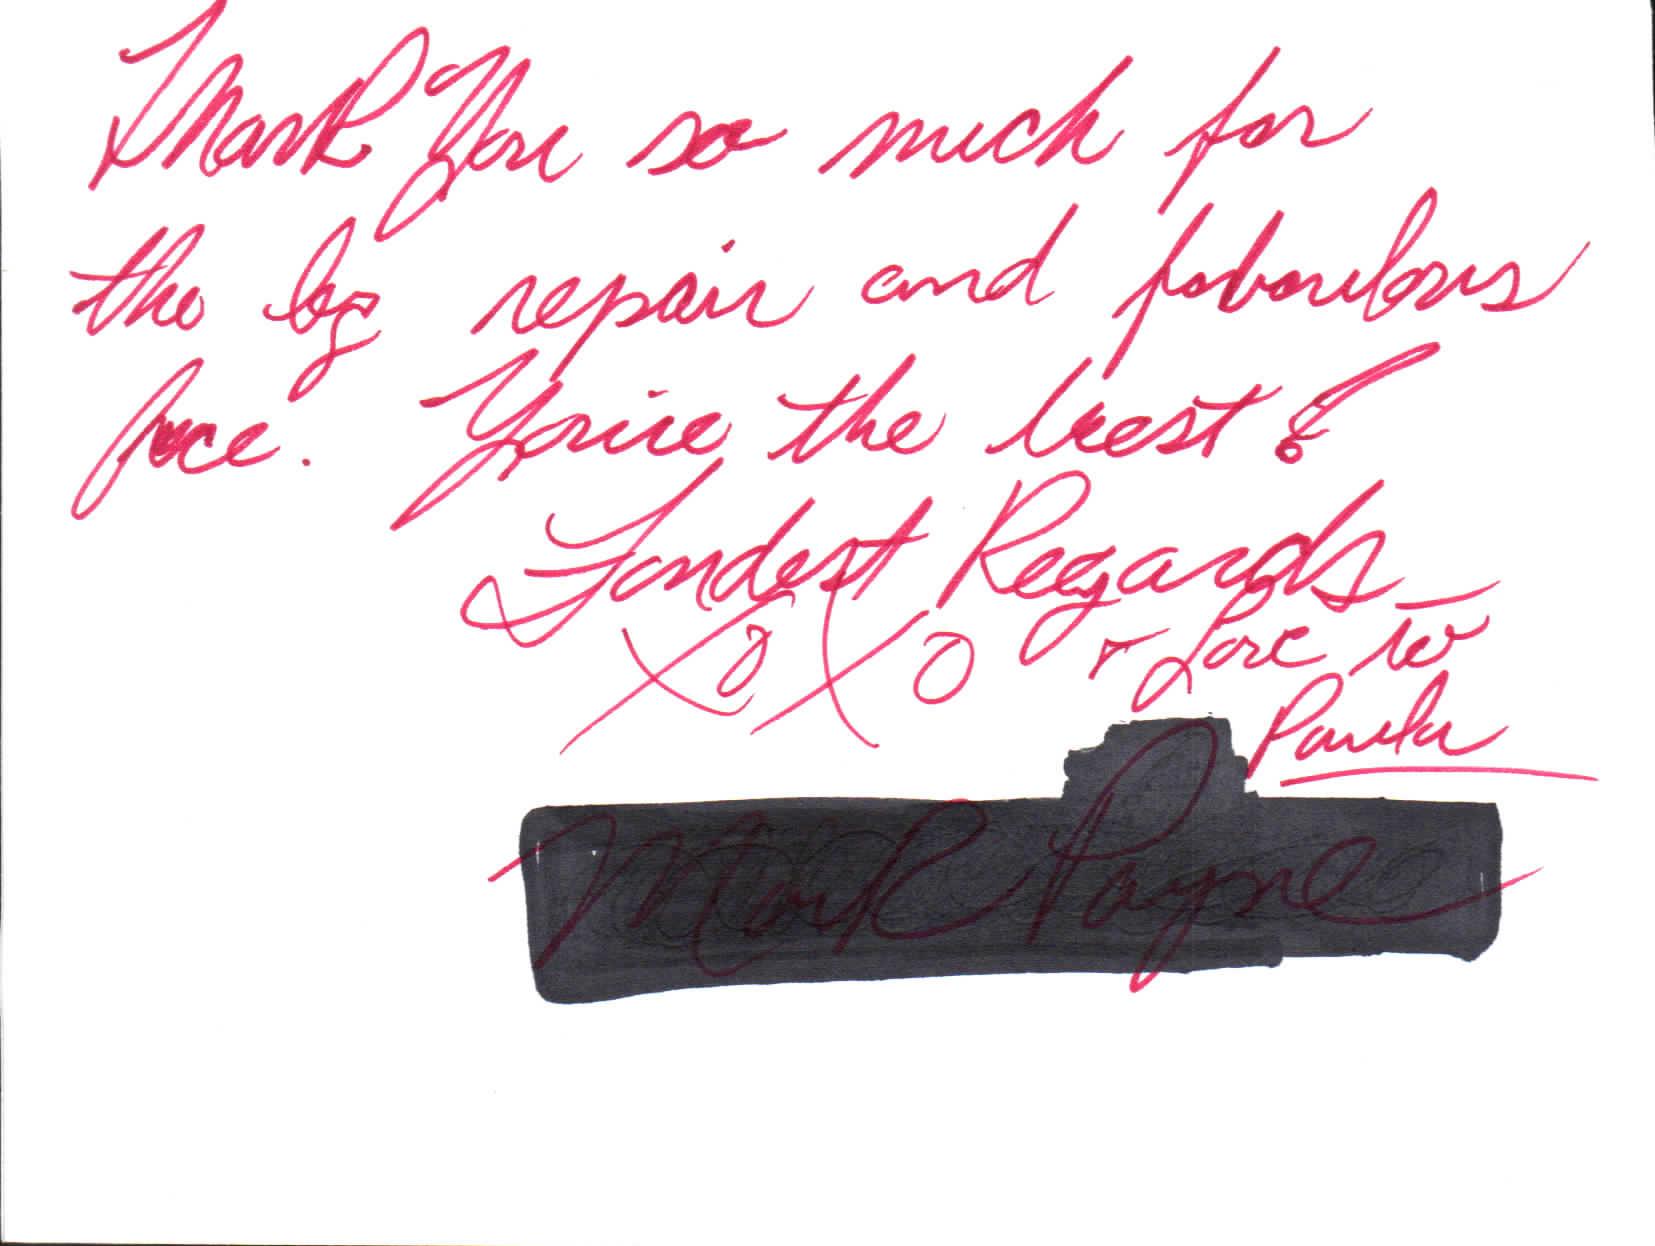 Thank You so much for
the leg repair and fabulous
face. You're the best!
Fondest Regards —
XOXO & Love to
Paula